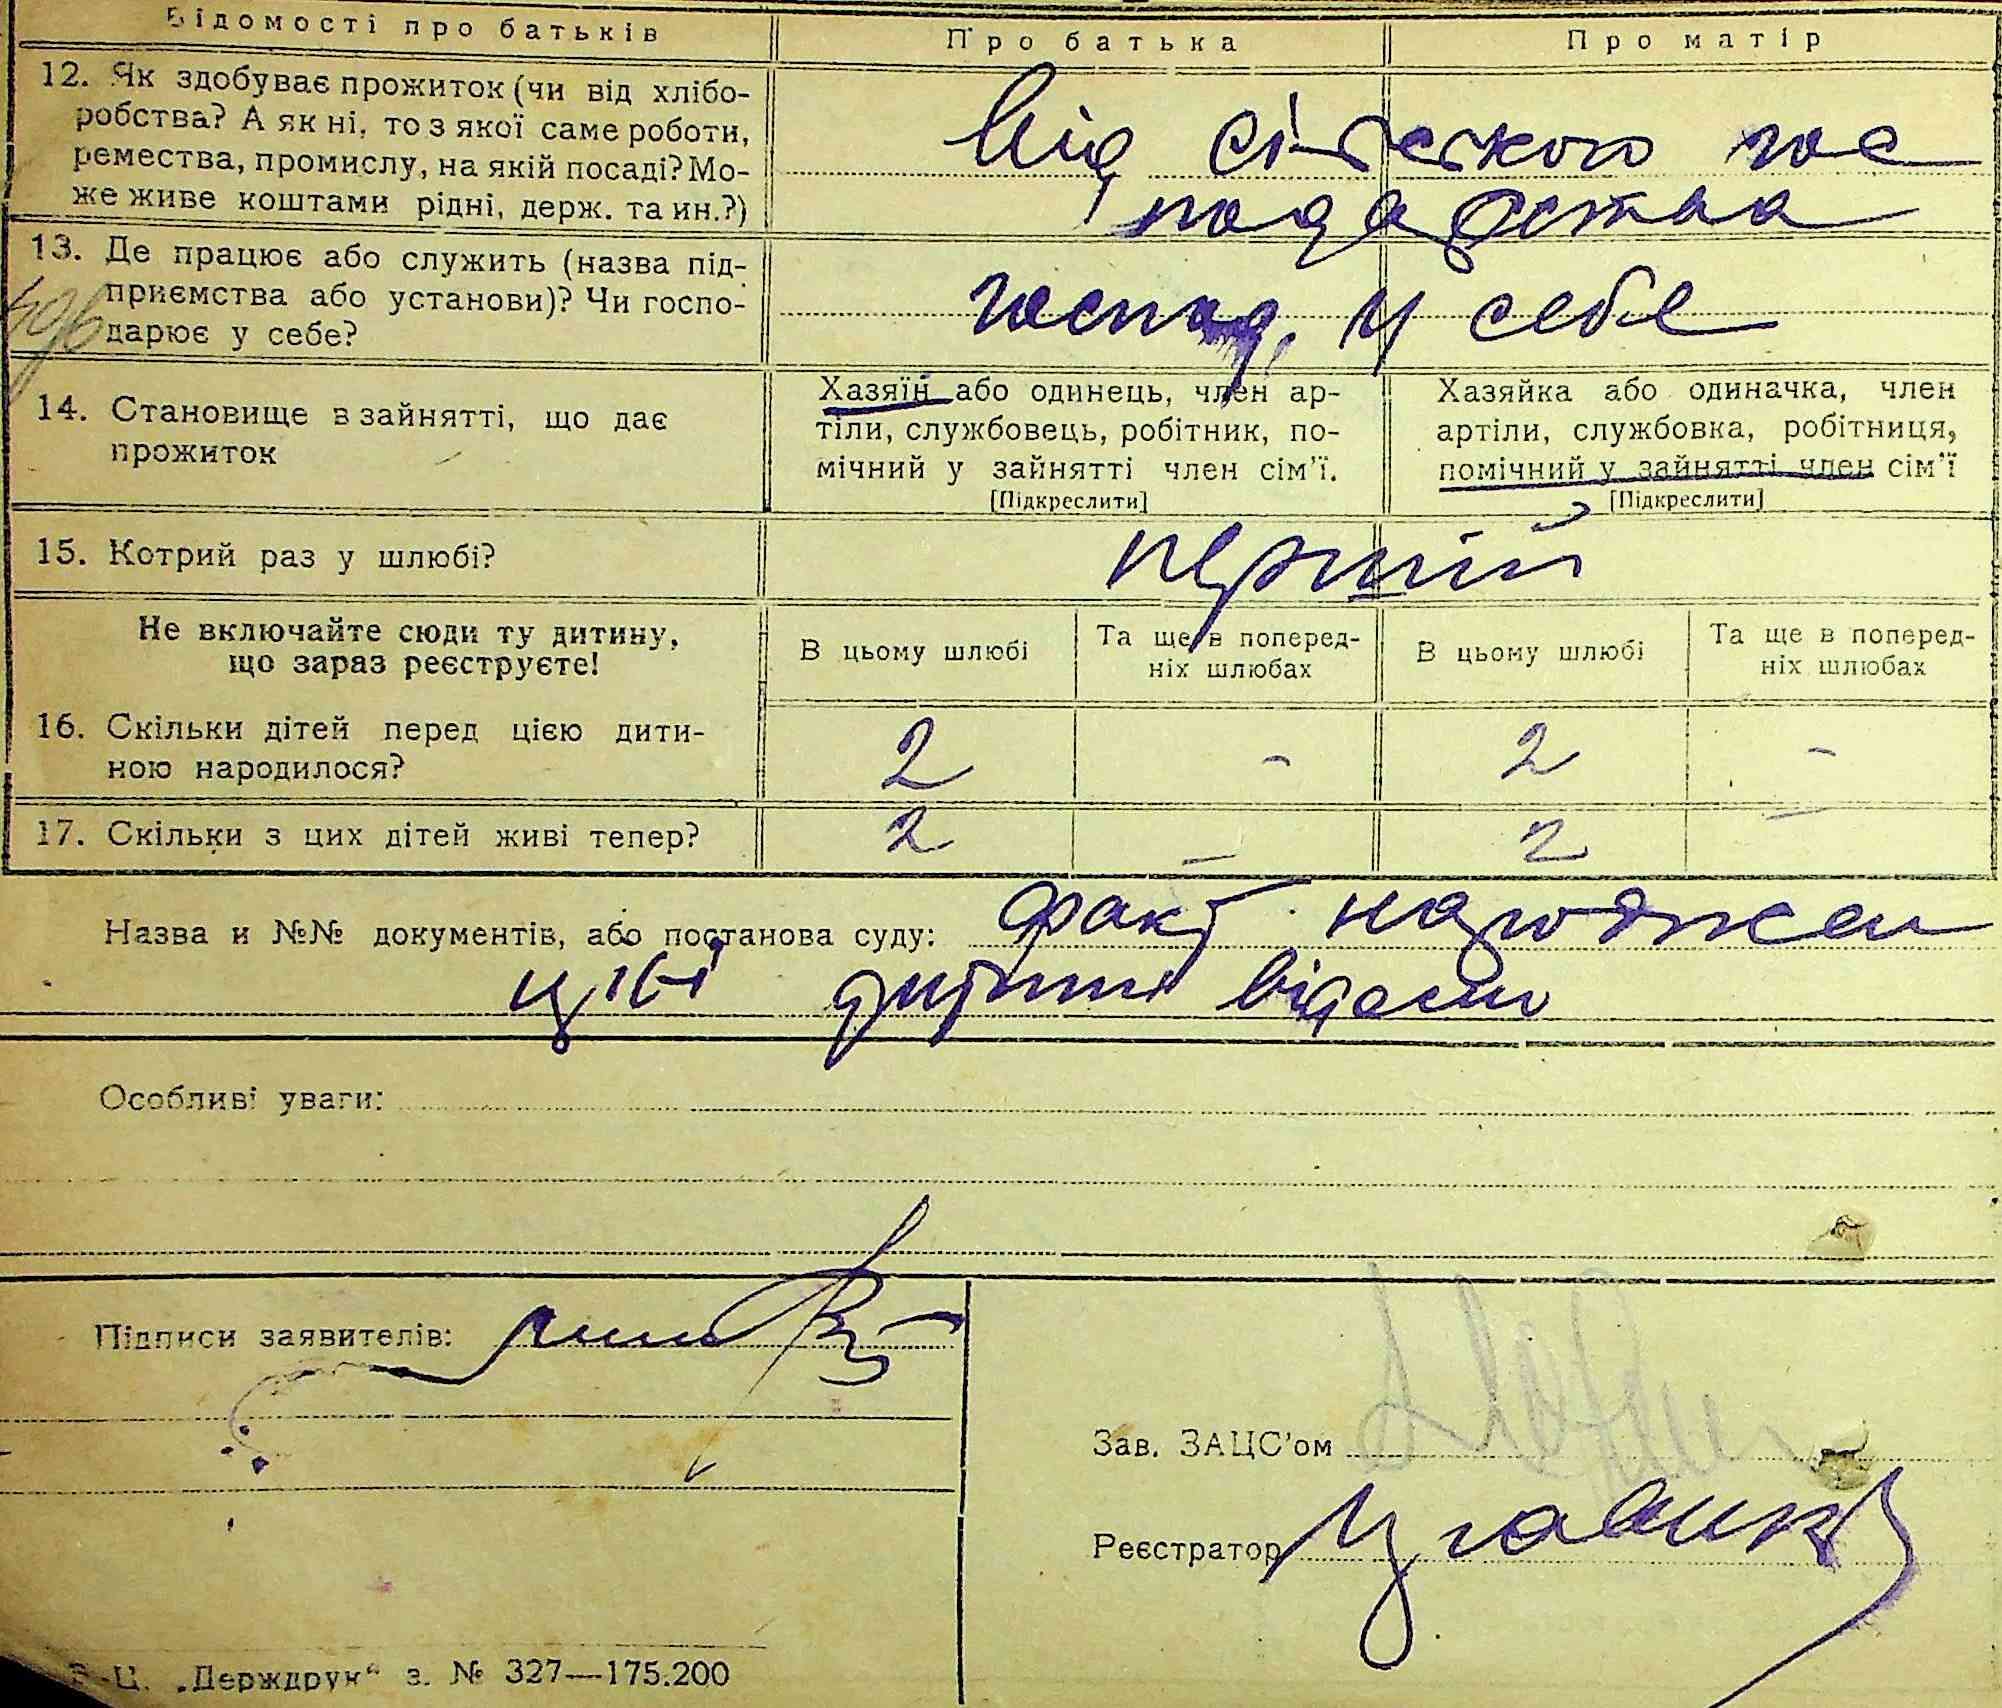 Відомості про батьків
Про батька
Про матір
12. Як здобуває прожиток (чи від хлібо-
робства? А як ні, то з якої саме роботи,
ремества, промислу, на якій посаді? Мо-
же живе коштами рідні, держ. та ин.?)
Від сільського гос
подарства
13. Де працює або служить (назва під-
приємства або установи)? Чи госпо-
дарює у себе?
господ. у себе
14. Становище в зайнятті, що дає
прожиток
Хазяїн або одинець, член ар-
тіли, службовець, робітник, по-
мічний у зайнятті член сім'ї.
[Підкреслити]
Хазяйка або одиначка, член
артіли, службовка, робітниця,
помічний у зайнятті член сім'ї
[Підкреслити]
15. Котрий раз у шлюбі?
перший
Не включайте сюди ту дитину,
що зараз реєструєте!
В цьому шлюбі
Та ще в поперед-
ніх шлюбах
В цьому шлюбі
Та ще в поперед-
ніх шлюбах
16. Скільки дітей перед цією дити-
ною народилося?
2 - 2 -
17. Скільки з цих дітей живі тепер?
2 - 2 -
Назва и №№ документів, або постанова суду: факт народжен
цієї дитини відомо
Особливі уваги:
Підписи заявителів:
Зав. ЗАЦС'ом
Реєстратор
"Держдрук" з. № 327—175.200